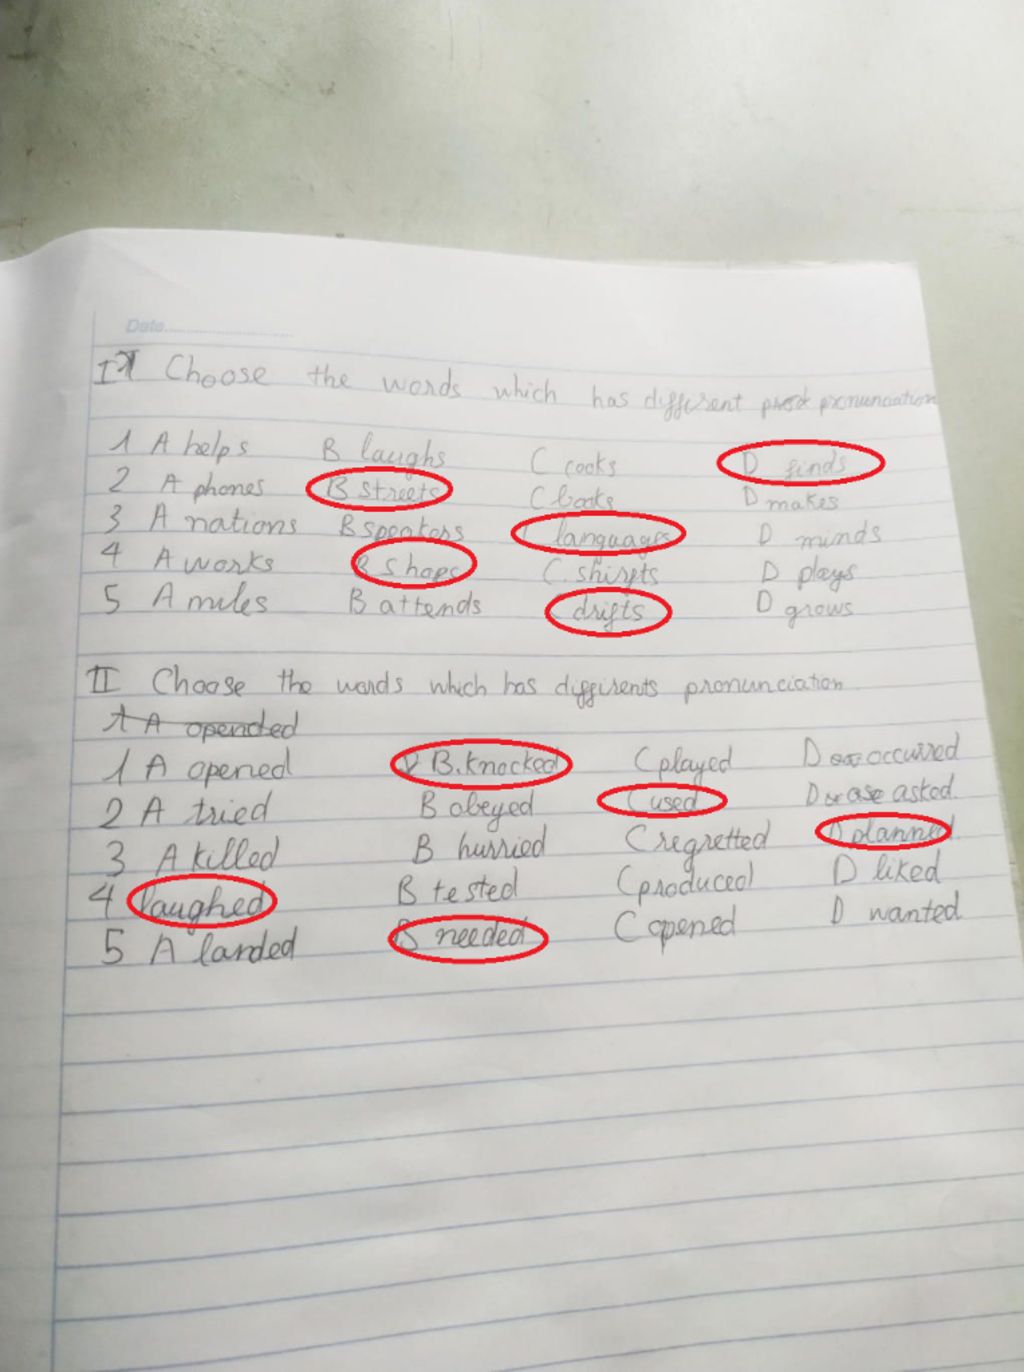 Date
II Choose the words which has different pronunciation
1 A helps B laughs C cooks D finds
2 A phones B streets C books D makes
3 A nations B speakers C languages D minds
4 A works B shops C shirfts D plays
5 A miles B attends C drifts D grows
II Choose the words which has diffirents pronunciation
1 A opended
1 A opened B. knocked C played D occurred
2 A tried B obeyed C used D asked
3 A killed B hurried C regretted D planned
4 laughed B tested C produced D liked
5 A landed B needed C opened D wanted